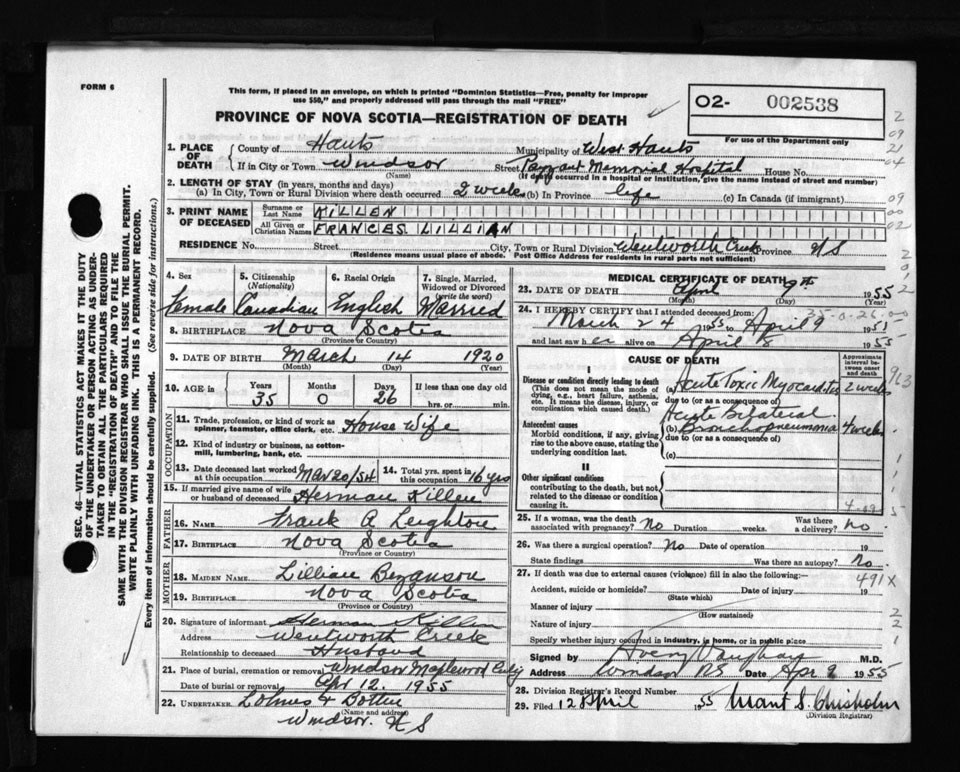 FORM 6
This form, if placed in an envelope, on which is printed "Dominion Statistics—Free, penalty for improper
use $50," and properly addressed will pass through the mail "FREE"
PROVINCE OF NOVA SCOTIA—REGISTRATION OF DEATH
O2- 002538
For use of the Department only
1. PLACE OF DEATH
County of Hants Municipality of West Hants
If in City or Town Windsor Street Payzant Memorial Hospital House No.
(Name) (If death occurred in a hospital or institution, give the name instead of street and number)
2. LENGTH OF STAY (in years, months and days)
(a) In City, Town or Rural Division where death occurred 2 weeks (b) In Province life (c) In Canada (if immigrant)
3. PRINT NAME OF DECEASED
Surname or Last Name KILLEN
All Given or Christian Names FRANCES LILLIAN
RESIDENCE No. Street City, Town or Rural Division Wentworth Creek Province N S
(Residence means usual place of abode. Post Office Address for residents in rural parts not sufficient)
4. Sex Female
5. Citizenship (Nationality) Canadian
6. Racial Origin English
7. Single, Married, Widowed or Divorced (write the word) Married
8. BIRTHPLACE Nova Scotia
(Province or Country)
9. DATE OF BIRTH March 14 1920
(Month) (Day) (Year)
10. AGE in Years 35 Months 0 Days 26 If less than one day old hrs. or min.
OCCUPATION
11. Trade, profession, or kind of work as spinner, teamster, office clerk, etc. House Wife
12. Kind of industry or business, as cotton-mill, lumbering, bank, etc.
13. Date deceased last worked at this occupation Mar 20/54
14. Total yrs. spent in this occupation 16 yrs
15. If married give name of wife or husband of deceased Herman Killen
FATHER
16. NAME Frank A Leighton
17. BIRTHPLACE Nova Scotia
(Province or Country)
MOTHER
18. MAIDEN NAME Lillian Bezanson
19. BIRTHPLACE Nova Scotia
(Province or Country)
20. Signature of informant Herman Killen
Address Wentworth Creek
Relationship to deceased Husband
21. Place of burial, cremation or removal Windsor Maplewood
Date of burial or removal Apr 12. 1955
22. UNDERTAKER
(Name and address)
Windsor. N S
MEDICAL CERTIFICATE OF DEATH
23. DATE OF DEATH April 9th 1955
(Month) (Day) (Year)
24. I HEREBY CERTIFY that I attended deceased from:
March 24 1955 to April 9 1955
and last saw her alive on April 8 1955
35-0-26-00
CAUSE OF DEATH
Approximate interval between onset and death
I
Disease or condition directly leading to death
(This does not mean the mode of dying, e.g., heart failure, asthenia, etc. It means the disease, injury, or complication which caused death.)
(a) Acute Toxic Myocarditis 2 weeks
due to (or as a consequence of)
Antecedent causes
Morbid conditions, if any, giving rise to the above cause, stating the underlying condition last.
Acute Bilateral
(b) Bronchopneumonia 4 weeks
due to (or as a consequence of)
(c)
II
Other significant conditions
contributing to the death, but not related to the disease or condition causing it.
25. If a woman, was the death associated with pregnancy? No Duration weeks. Was there a delivery? no.
26. Was there a surgical operation? No Date of operation 19
State findings Was there an autopsy? No
27. If death was due to external causes (violence) fill in also the following:—
491X
Accident, suicide or homicide? Date of injury 19
(State which)
Manner of injury
(How sustained)
Nature of injury
Specify whether injury occurred in industry, in home, or in public place
Signed by Avery Vaughan M.D.
Address Windsor NS Date Apr 9 1955
28. Division Registrar's Record Number
29. Filed 12 April 1955 Grant S. Chisholm
(Division Registrar)
SEC. 46—VITAL STATISTICS ACT MAKES IT THE DUTY
OF THE UNDERTAKER OR PERSON ACTING AS UNDER-
TAKER TO OBTAIN ALL THE PARTICULARS REQUIRED
IN THE "REGISTRATION OF DEATH" AND TO FILE THE
SAME WITH THE DIVISION REGISTRAR WHO SHALL ISSUE THE BURIAL PERMIT.
WRITE PLAINLY WITH UNFADING INK. THIS IS A PERMANENT RECORD.
Every item of information should be carefully supplied. (See reverse side for instructions.)